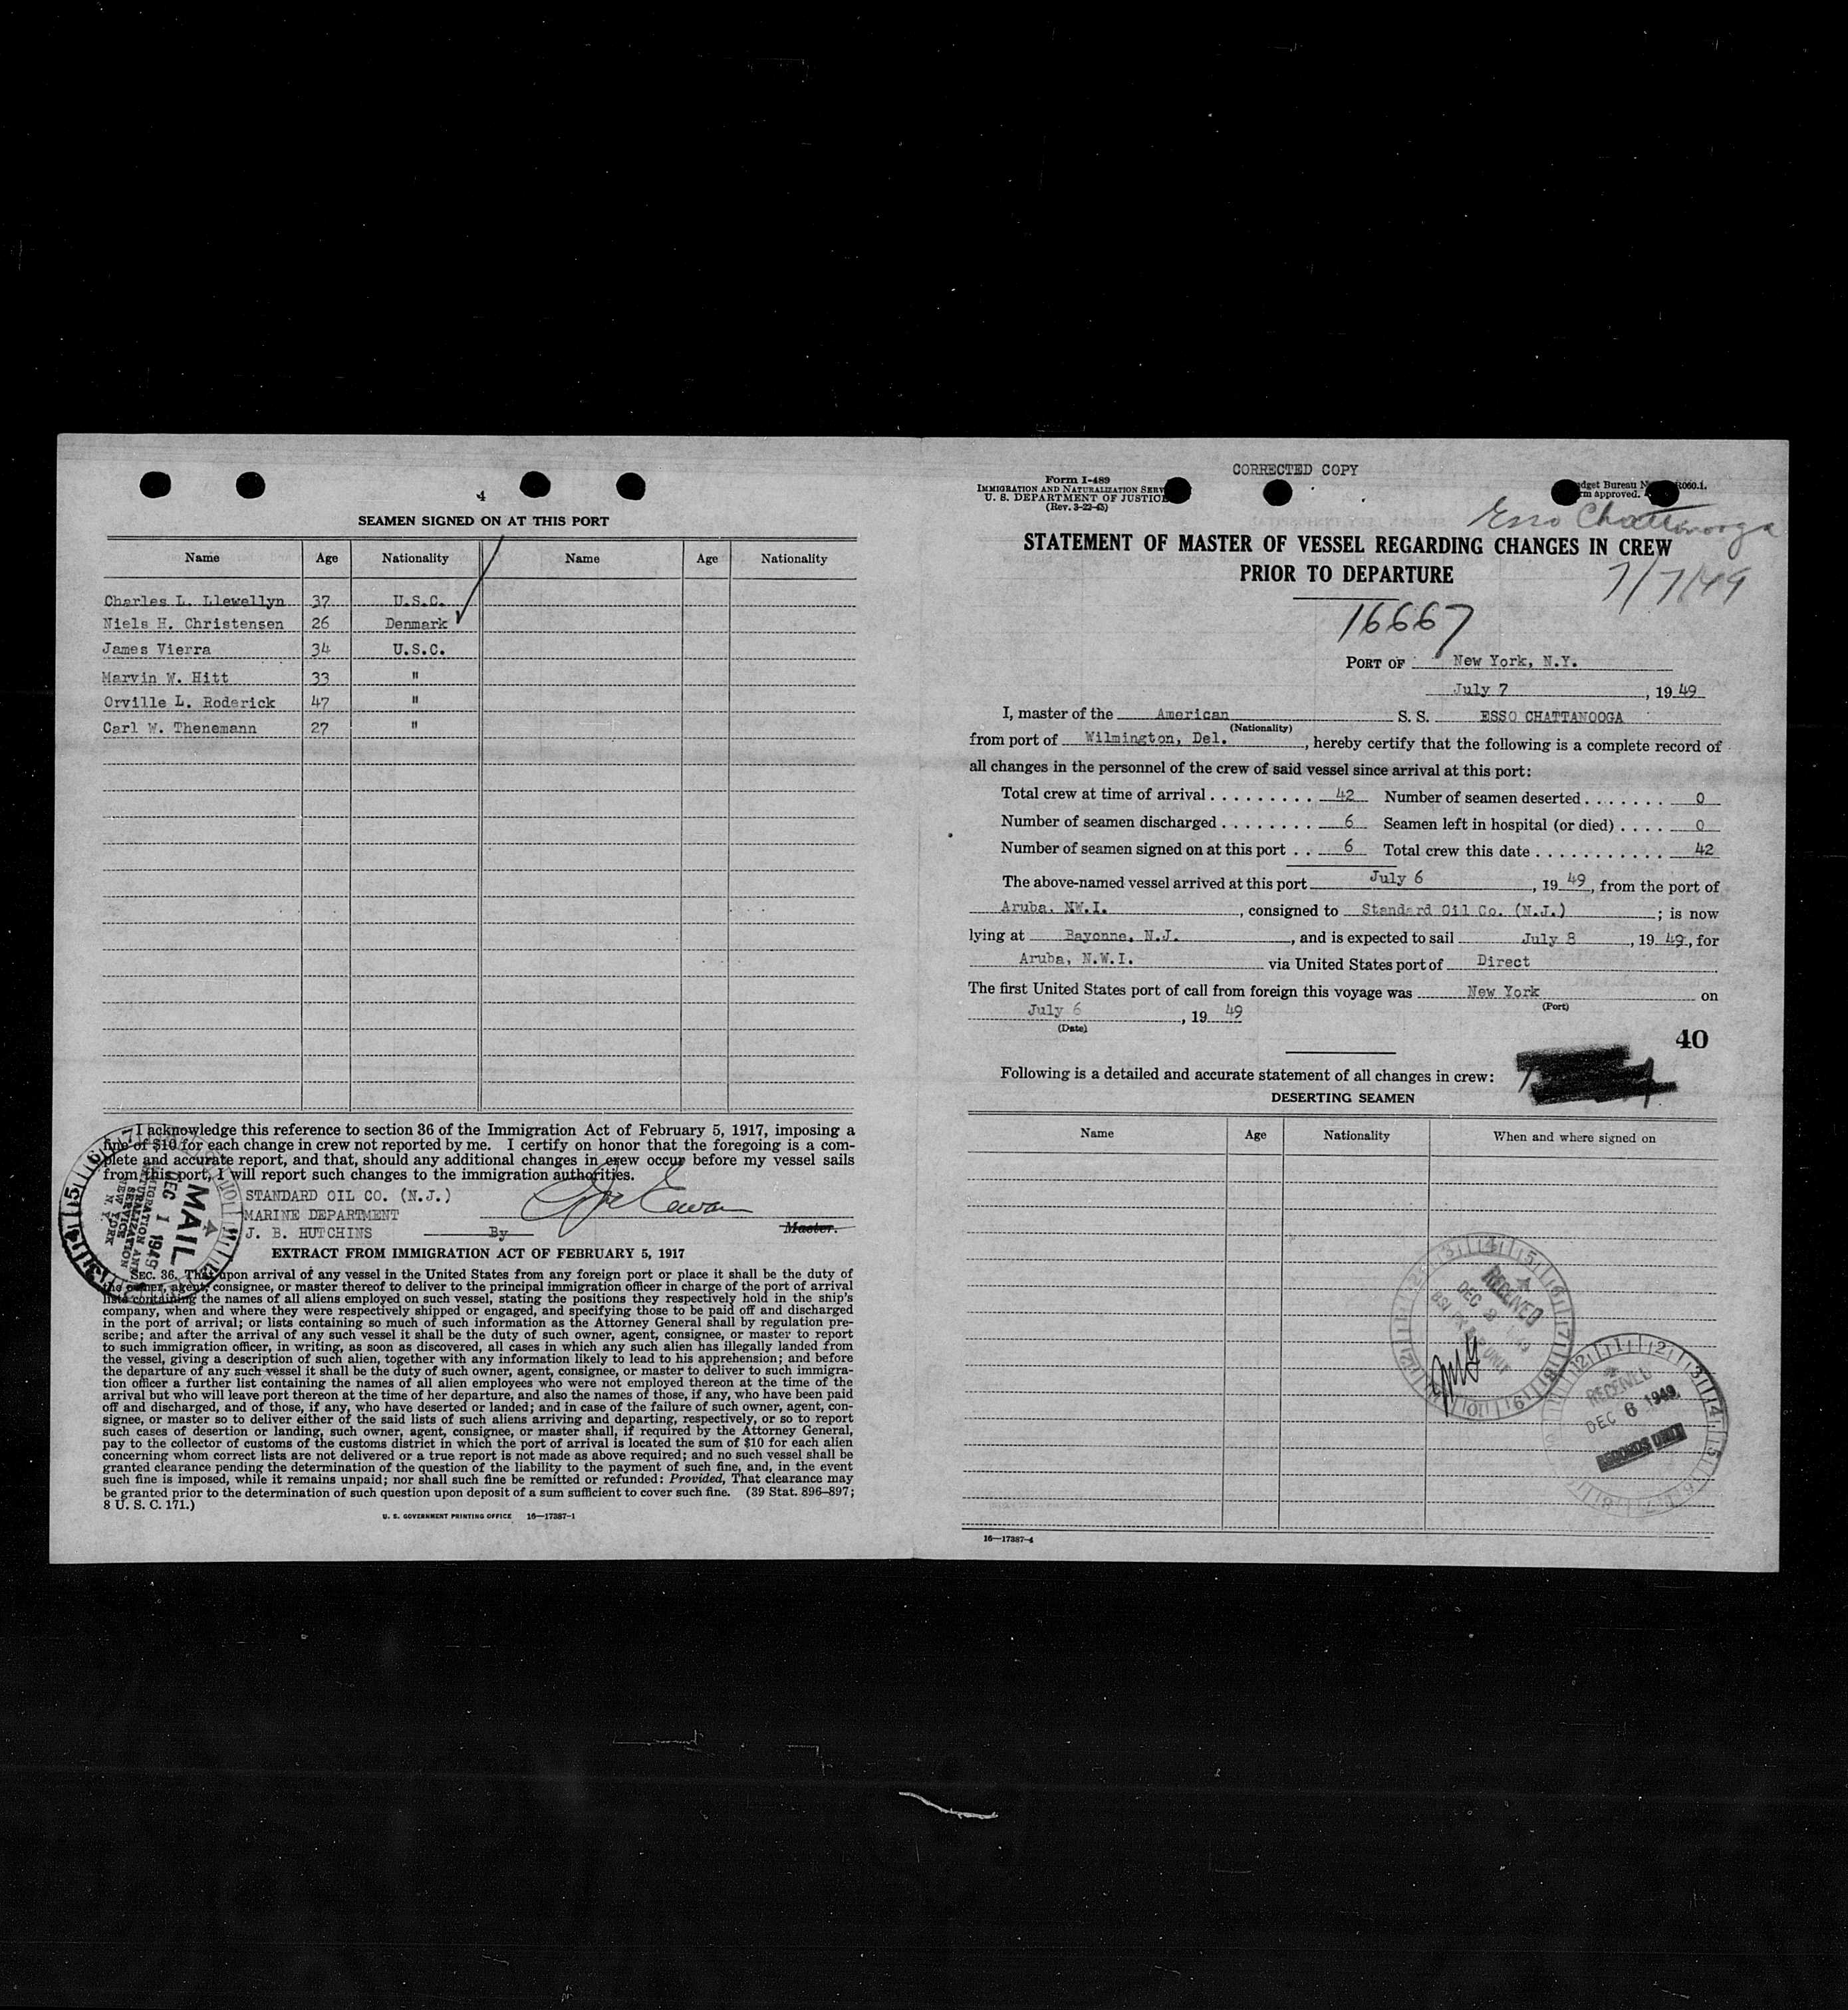 4
SEAMEN SIGNED ON AT THIS PORT
Name Age Nationality Name Age Nationality
Charles L. Llewellyn 37 U.S.C.
Niels H. Christensen 26 Denmark
James Vierra 34 U.S.C.
Marvin W. Hitt 33 "
Orville L. Roderick 47 "
Carl W. Thenemann 27 "
I acknowledge this reference to section 36 of the Immigration Act of February 5, 1917, imposing a
fine of $10 for each change in crew not reported by me. I certify on honor that the foregoing is a com-
plete and accurate report, and that, should any additional changes in crew occur before my vessel sails
from this port, I will report such changes to the immigration authorities.
STANDARD OIL CO. (N.J.)
MARINE DEPARTMENT
J. B. HUTCHINS By Master.
MAIL
DEC 1 1949
IMMIGRATION AND
NATURALIZATION
SERVICE
NEW YORK
N. Y.
EXTRACT FROM IMMIGRATION ACT OF FEBRUARY 5, 1917
SEC. 36. That upon arrival of any vessel in the United States from any foreign port or place it shall be the duty of
the owner, agent, consignee, or master thereof to deliver to the principal immigration officer in charge of the port of arrival
lists containing the names of all aliens employed on such vessel, stating the positions they respectively hold in the ship's
company, when and where they were respectively shipped or engaged, and specifying those to be paid off and discharged
in the port of arrival; or lists containing so much of such information as the Attorney General shall by regulation pre-
scribe; and after the arrival of any such vessel it shall be the duty of such owner, agent, consignee, or master to report
to such immigration officer, in writing, as soon as discovered, all cases in which any such alien has illegally landed from
the vessel, giving a description of such alien, together with any information likely to lead to his apprehension; and before
the departure of any such vessel it shall be the duty of such owner, agent, consignee, or master to deliver to such immigra-
tion officer a further list containing the names of all alien employees who were not employed thereon at the time of the
arrival but who will leave port thereon at the time of her departure, and also the names of those, if any, who have been paid
off and discharged, and of those, if any, who have deserted or landed; and in case of the failure of such owner, agent, con-
signee, or master so to deliver either of the said lists of such aliens arriving and departing, respectively, or so to report
such cases of desertion or landing, such owner, agent, consignee, or master shall, if required by the Attorney General,
pay to the collector of customs of the customs district in which the port of arrival is located the sum of $10 for each alien
concerning whom correct lists are not delivered or a true report is not made as above required; and no such vessel shall be
granted clearance pending the determination of the question of the liability to the payment of such fine, and, in the event
such fine is imposed, while it remains unpaid; nor shall such fine be remitted or refunded: Provided, That clearance may
be granted prior to the determination of such question upon deposit of a sum sufficient to cover such fine. (39 Stat. 896–897;
8 U. S. C. 171.)
U. S. GOVERNMENT PRINTING OFFICE 16—17387-1
CORRECTED COPY
Form I-489
IMMIGRATION AND NATURALIZATION SERV
U. S. DEPARTMENT OF JUSTICE
(Rev. 3-22-45)
dget Bureau N R060.1.
rm approved.
Esso Chattanooga
7/7/49
STATEMENT OF MASTER OF VESSEL REGARDING CHANGES IN CREW
PRIOR TO DEPARTURE
16667
PORT OF New York, N.Y.
July 7, 19 49
I, master of the American S. S. ESSO CHATTANOOGA
(Nationality)
from port of Wilmington, Del., hereby certify that the following is a complete record of
all changes in the personnel of the crew of said vessel since arrival at this port:
Total crew at time of arrival . . . . . . . . . 42 Number of seamen deserted . . . . . . . 0
Number of seamen discharged . . . . . . . . 6 Seamen left in hospital (or died) . . . . 0
Number of seamen signed on at this port . . 6 Total crew this date . . . . . . . . . . . 42
The above-named vessel arrived at this port July 6, 19 49, from the port of
Aruba, NW.I., consigned to Standard Oil Co. (N.J.); is now
lying at Bayonne, N.J., and is expected to sail July 8, 19 49, for
Aruba, N.W.I. via United States port of Direct
The first United States port of call from foreign this voyage was New York on
(Port)
July 6, 19 49
(Date)
40
Following is a detailed and accurate statement of all changes in crew:
DESERTING SEAMEN
Name Age Nationality When and where signed on
RECEIVED
DEC
RECEIVED
DEC 6 1949
RECORDS UNIT
16—17387-4